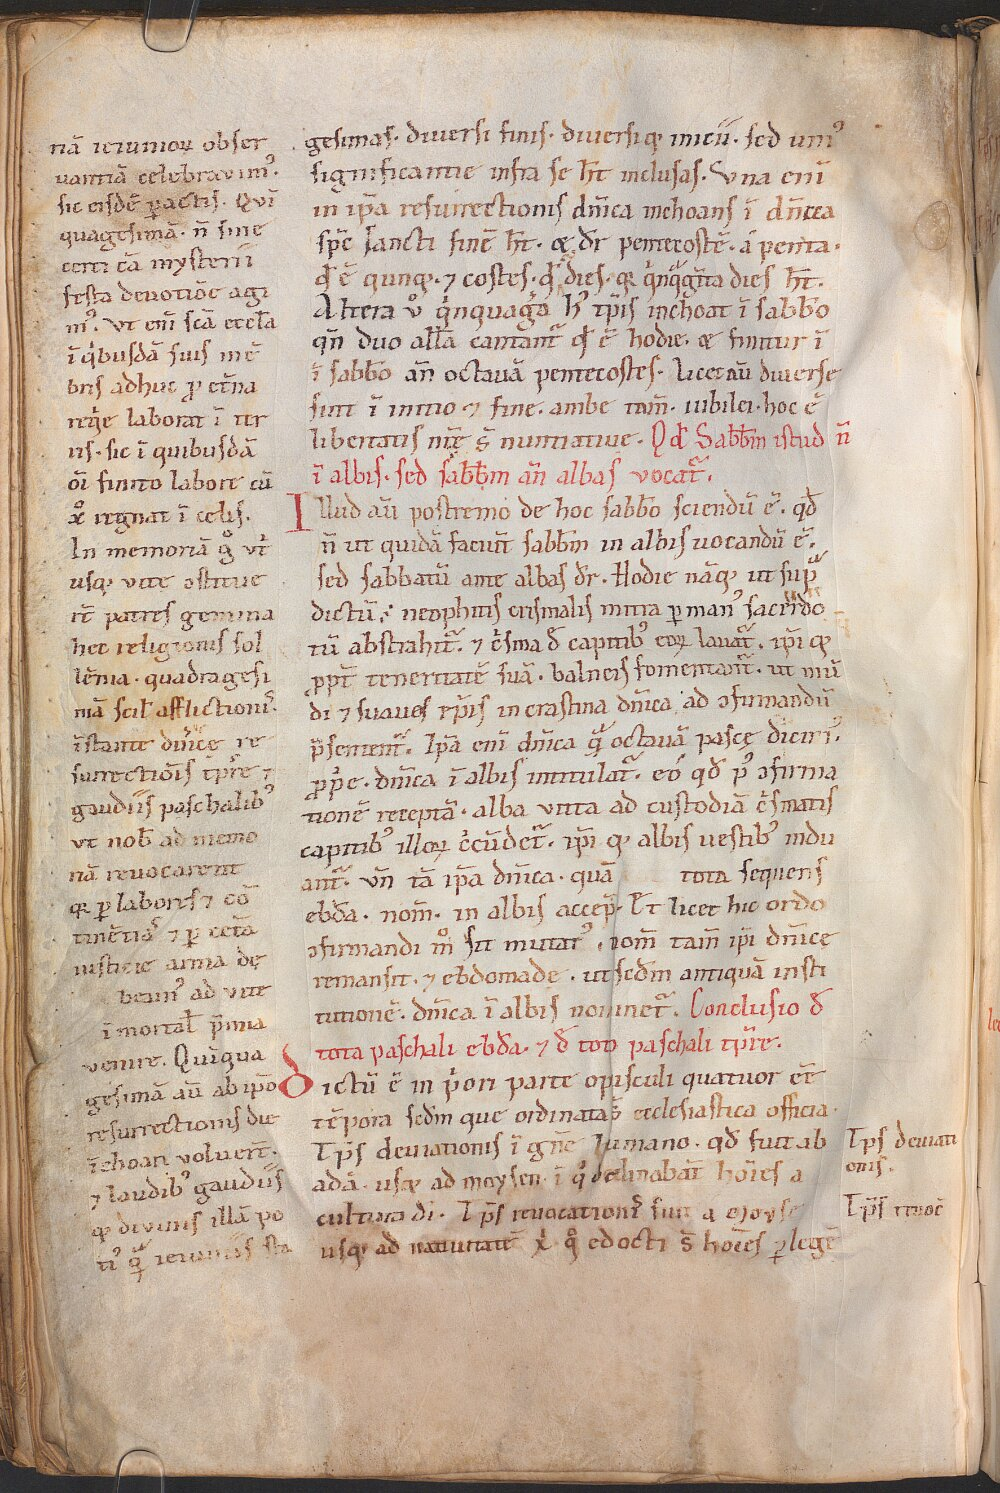 nā ieiunioꝝ obser
uantiā celebrauim᷒.
sic eisdē ꝑactis. Qui
quagesimā. n̄ sine
certi cā mysterii
festa deuotiōe agi
m᷒. Vt eni scā eccła
ī q̇busdā suis mē
bris adhuc ꝓ et̄na
req̇e laborat ī ter
ris. sic ī quibusdā
oī finito labore cū
xº regnat ī celis.
In memoriā gº ut̛
usq; uite ꝯstitue
rē patres gemina
hec religionis sol
lēnia. quadragesi
mā scił afflictionis.
īstante dn̄ice re
surrectiōis tp̄re ⁊
gaudiis paschalib᷒
Vt nob̄ ad memo
riā reuocarent
q; ꝑ labores ⁊ cō
tinētiā ⁊ ꝑ cetā
iusticie arma de
beam᷒ ad uite
īmortał p̄mia
uenire. Quiqua
gesimā aū ab ip̄o
resurrectionis die
īchoari uoluer̄t.
⁊ laudib᷒ gaudiis
q; diuinis illā po
ti᷒ qᷓ ieiuniis sta
gesimas. diuersi finis. diuersiq; inicii. sed uni᷒
significantie infra se hn̄t inclusas. Vna eni
in ip̄a resurrectionis dn̄ica inchoans ī dn̄ica
sp̄c sancti finē ht̄. ⁊ dr̄ pentecostē. a penta.
qd̄ ē quinq;. ⁊ costes. qd̄ dies. q; q̇nq̇gīta dies ht̄.
Altera ů q̇nquagᵃ h᷒ tp̄is inchoat ī sabb̄o
qn̄ duo alła cantant᷑ qd̄ ē hodie. ⁊ finitur ī
ī sabb̄o an̄ octauā pentecostes. licet aū diuerse
sint ī initio. ⁊ fine. ambe tam̄. iubilei. hoc ē
libertatis nr̄ę s̄ nuntiatiue. Qd̄ Sabb̄m istud n̄
ī albis. sed sabb̄m an̄ albas uocat᷑.
Illud aū postremo de hoc sabb̄o sciendū ē. qd̄
n̄ ut quidā faciūt sabb̄m in albis uocandū ē.
sed sabbatū ante albas dr̄. Hodie nāq; ut sup̄ᵃ
dictū; neophitis crismalis mitra ꝑ man᷒ sacerdo
tū abstrahit᷑. ⁊ c̄sma d̄ capitib᷒ eoꝝ lauat᷑. ip̄i q;
ꝓpt̄ teneritatē suā. balneis fomentant᷑. ut mū
di ⁊ suaues ep̄is in crastina dn̄ica ad ꝯfirmandū
p̄sentent᷑. Ip̄a eni dn̄ica qᷓ octauā pasce dicim᷒.
ꝓp̄e. dn̄ica ī albis intitulat᷑. eº qd̄ p᷒ ꝯfirma
tionē receptā. alba uitta ad custodiā c̄smatis
capitib᷒ illoꝝ c̄cūdet᷑. ip̄i q; albis uestib᷒ indu
ant᷑. Vn̄ tā ip̄a dn̄ica. quā tota sequens
ebd̄a. nom̄. in albis accep̄. Et licet hic ordo
ꝯfirmandi mº sit mutat᷒. nom̄ tam̄ ip̄i dn̄ice
remansit. ⁊ ebdomade. ut sedm̄ antiquā insti
tutionē. dn̄ica ī albis nominet᷑. Conclusio d̄
tota paschali ebd̄a. ⁊ d̄ toto paschali tp̄re.
Dictū ē in p̛ori parte opisculi quatuor eē
tēpora sedm̄ que ordinata s̄ ecclesiastica officia.
Tp̄s deuiationis ī gn̄e humano. qd̄ fuit ab
adā. usq; ad moysen. ī qº declinabāt hoīes a
cultura di. Tp̄s reuocationis fuit a Moyse
usq; ad natiuitatē xi̇ qº edocti s̄ hoīes ꝑ legē
Tp̄s deuiati
onis.
Tp̄s reuoc̄